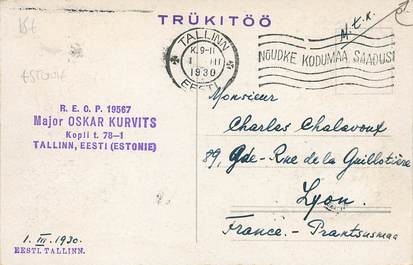 TRÜKITÖÖ
M.t.k.
ESTONIE
TALLINN
K. 9-11
1 III
1930
EESTI
NÕUDKE KODUMAA SAADUSI
R. E. O. P. 19567
Major OSKAR KURVITS
Kopli t. 78-1
TALLINN, EESTI (ESTONIE)
Monsieur
Charles Chalavoux
89, Gde-Rue de la Guillotière
Lyon.
France. - Prantsusmaa
1. III. 1930.
EESTI, TALLINN.